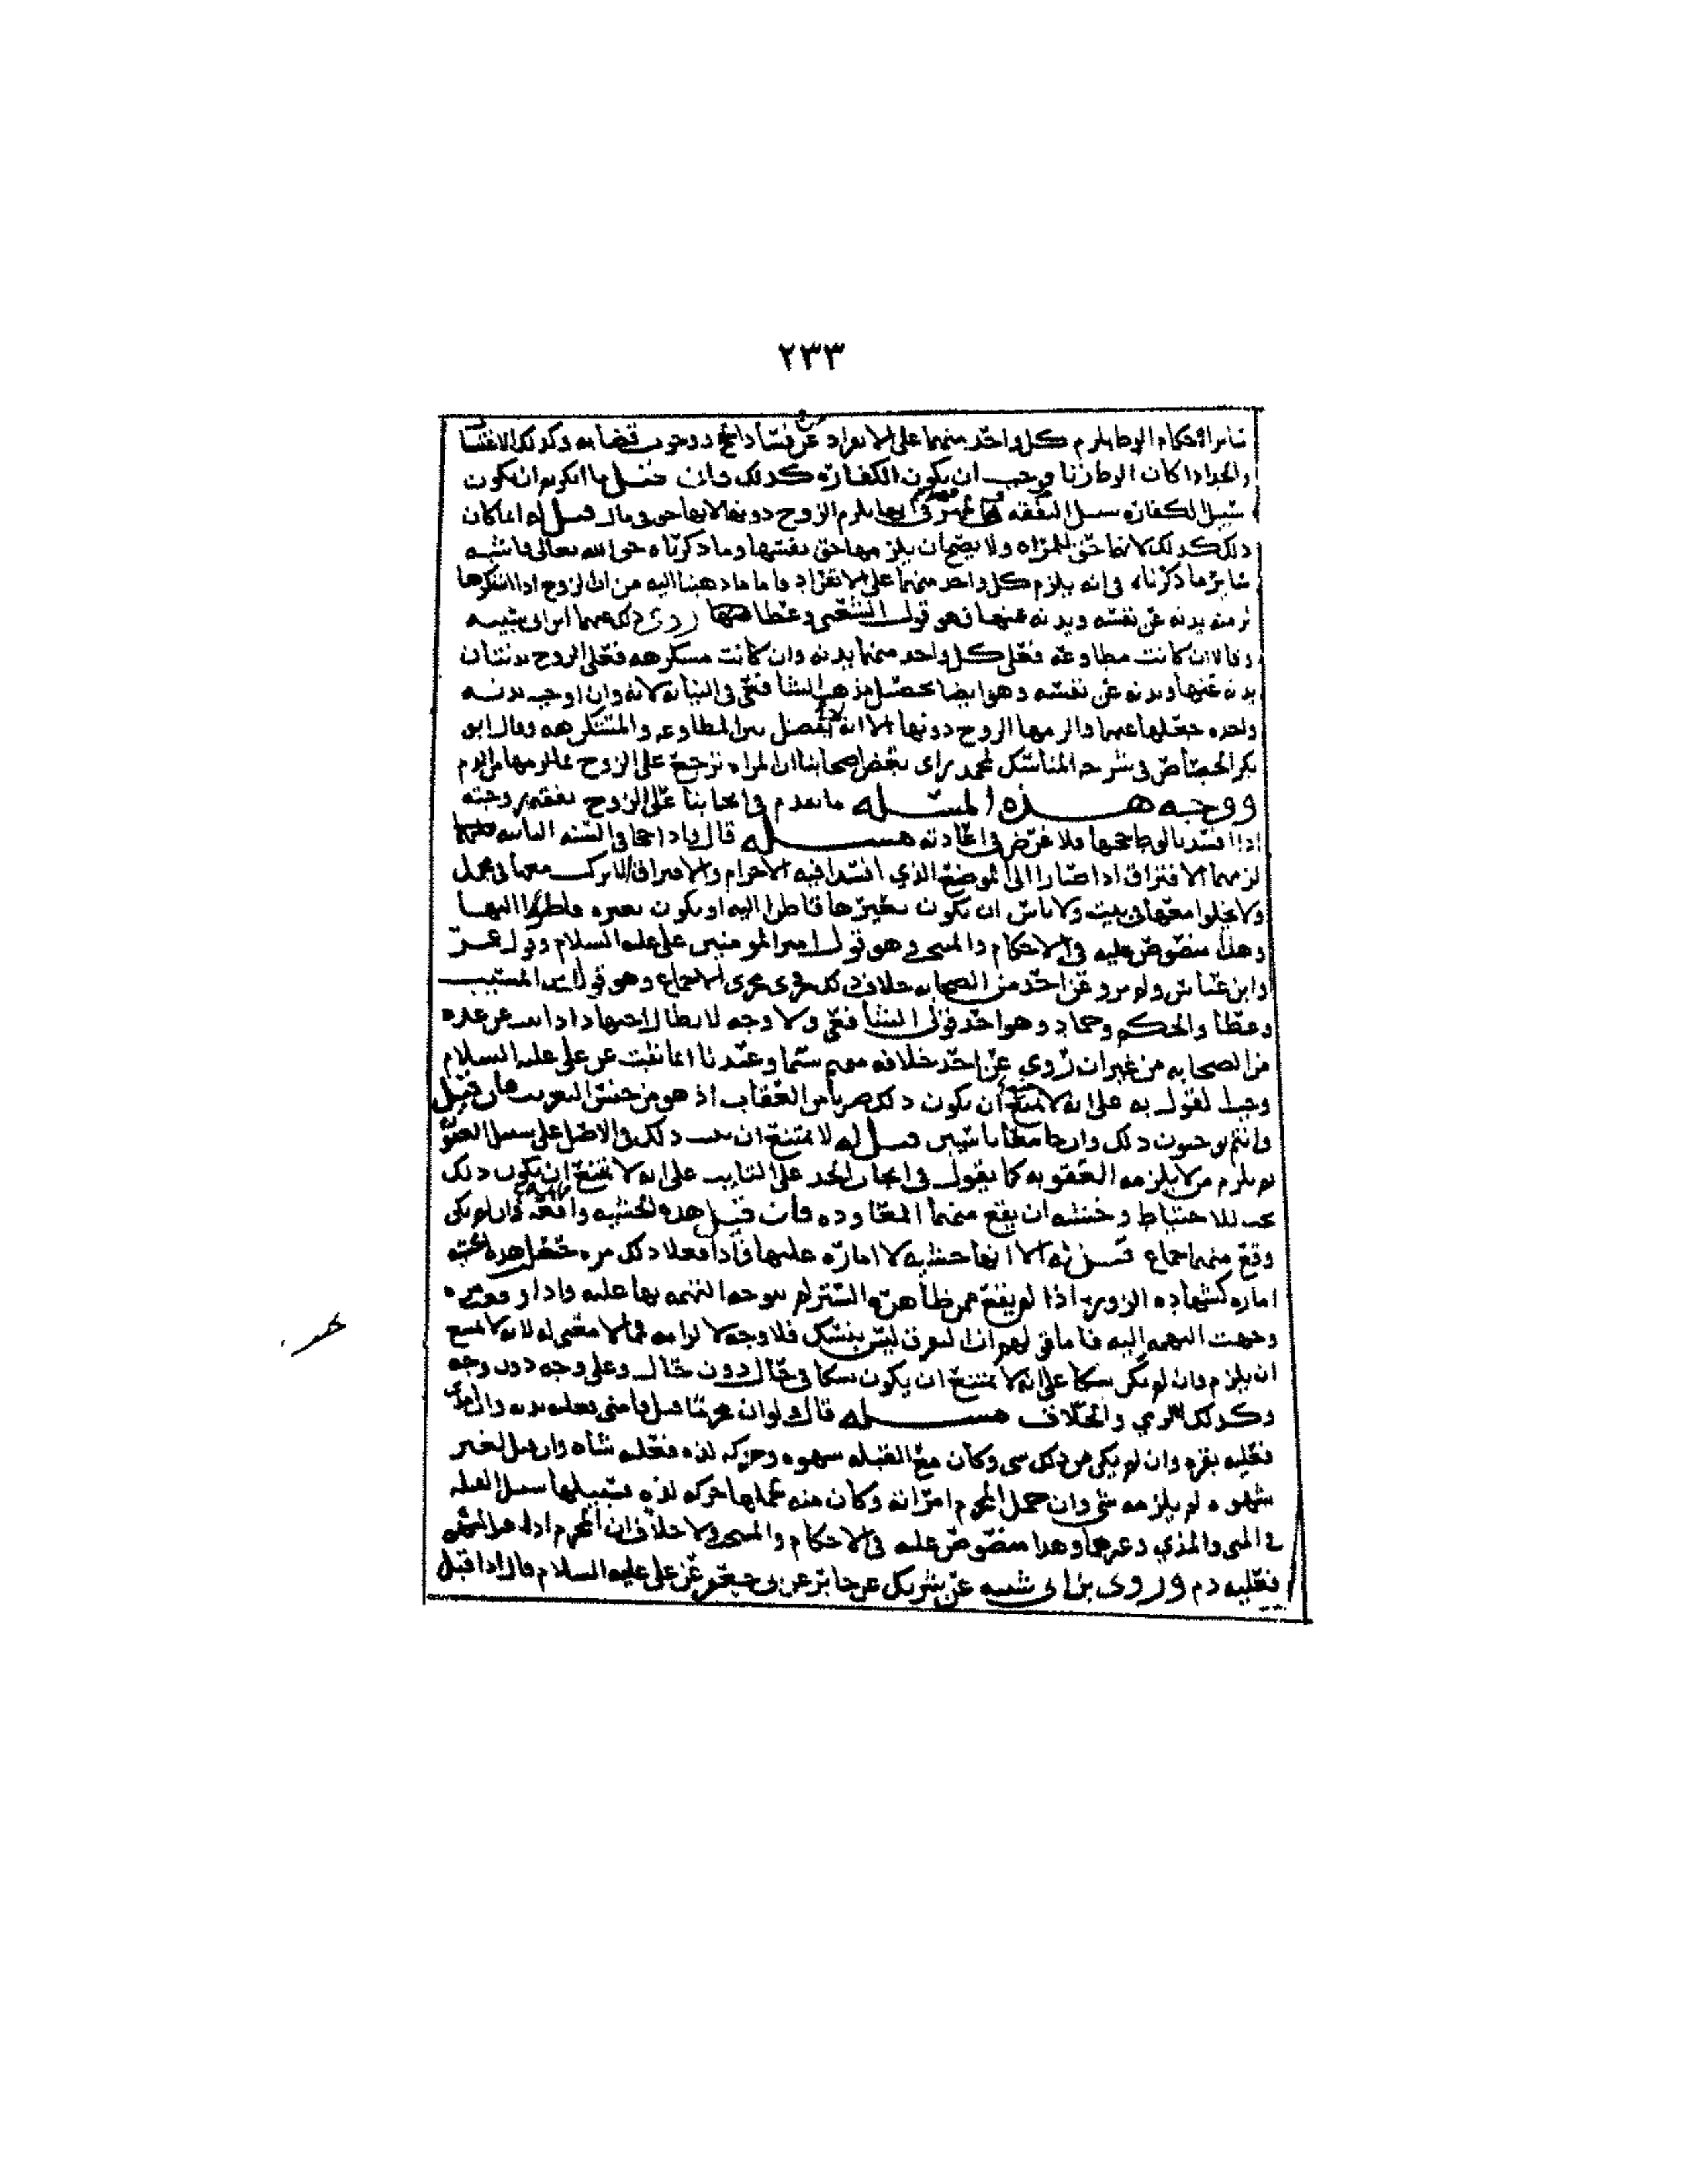 ٢٣٣
سائر الاحكام الوطا يلزم كل واحد منهما على الانفراد من فساد الحج ووجوب قضائه وكذلك الاغتسال
والحد اذا كان الوطا زنا وجب ان يكون الكفارة كذلك فان قيل ما انكرتم ان يكون
سبيل الكفاره سبيل النفقه في انها يلزم الزوج دونها لانها حق في مال قيل له انما كان
ذلك كذلك لانها حق للمراه ولا يصح ان يلزمها حق نفسها وما ذكرناه حق الله تعالى فاشبه
سائر ما ذكرناه في انه يلزم كل واحد منهما على الانفراد فاما ما ذهبنا اليه من ان الزوج اذا استكرهها
لزمته بدنه عن نفسه وبدنه عنها فهو قول الشعبي وعطا روى ذلك عنهما ابن ابي شيبه
وقالا ان كانت مطاوعه فعلى كل واحد منهما بدنه وان كانت مستكرهه فعلى الزوج بدنتان
بدنه عنها وبدنه عن نفسه وهو ايضا محصل مذهب الشافعي في النيابه لانه وان اوجب بدنه
واحده جعلها عنهما والزمها الزوج دونها الا انه لا يفصل بين المطاوعه والمستكرهه وقال ابو
بكر الجصاص في شرحه المناسك لمحمد راى بعض اصحابنا ان المراه ترجع على الزوج بما لزمها من الدم
ووجه هذه المسئله ما تقدم في ايجابنا على الزوج نفقه زوجته
اذا افسد بالوطا حجها فلا غرض في اعادته مسئله قال فاذا حجا في السنه الثانيه
لزمهما الافتراق اذا صارا الى الموضع الذي افسدا فيه الاحرام والافتراق الا يركب معها في محمل
ولا يخلوا معها في بيت ولا باس ان تكون بعيرها قاطرا اليه او يكون بعيره قاطرا اليها
وهذا منصوص عليه في الاحكام والمنتخب وهو قول امير المومنين علي عليه السلام وقول عمر
وابن عباس ولم يرو عن احد من الصحابه خلاف ذلك فجرى مجرى الاجماع وهو قول ابن المسيب
وعطا والحكم وحماد وهو احد قولي الشافعي ولا وجه لابطال اجتهاد اذا ثبت عن عده
من الصحابه من غير ان روي عن احد خلافه منهم سيما وعندنا انما ثبت عن علي عليه السلام
وجب القول به على انه لا يمتنع ان يكون ذلك ضربا من العقاب اذ هو من جنس التغريب فان قيل
وانتم توجبون ذلك وان جا معا تائبين قيل له لا يمتنع ان يجب ذلك في الاصل على سبيل العقوبه
ثم يلزم من لا يلزمه العقوبه كما يقول في ايجاب الحد على التايب على انه لا يمتنع ان يكون ذلك
يجب للاحتياط وخشيه ان يقع منهما المعاوده فان قيل هذه الخشيه واقعه وان لم يكن
وقع منهما جماع قيل له الا انها خشيه لا اماره عليها فاذا فعلا ذلك مره حصل لهذه الخشيه
اماره كشهاده الزور اذا لم يقع ممن ظاهره الستر لم يتوجه التهمه بها عليه واذا زور مره
وجهت التهمه اليه فاما قولهم ان التفرق ليس بنسك فلا وجه لالزامه فمما لا معنى له لانه لا يمتنع
ان يلزم وان لم يكن نسكا على انه لا يمتنع ان يكون نسكا في حال دون حال وعلى وجه دون وجه
وكذلك الرمي والحلاق مسئله قال ولو ان محرما قبل فامنى فعليه بدنه وان امذى
فعليه بقره وان لم يكن من ذلك شي وكان مع القبله شهوه وحركه لذه فعليه شاه وان قبل لغير
شهوه لم يلزمه شي وان حمل المحرم امراته وكان منه بحملها حركه لذه فسبيلها سبيل القبله
في المني والمذي وغيرهما وهذا منصوص عليه في الاحكام والمنتخب ولا خلاف ان المحرم اذا
فعليه دم وروى بن ابي شيبه عن شريك عن جابر عن ابي جعفر عن علي عليه السلام قال اذا قبل